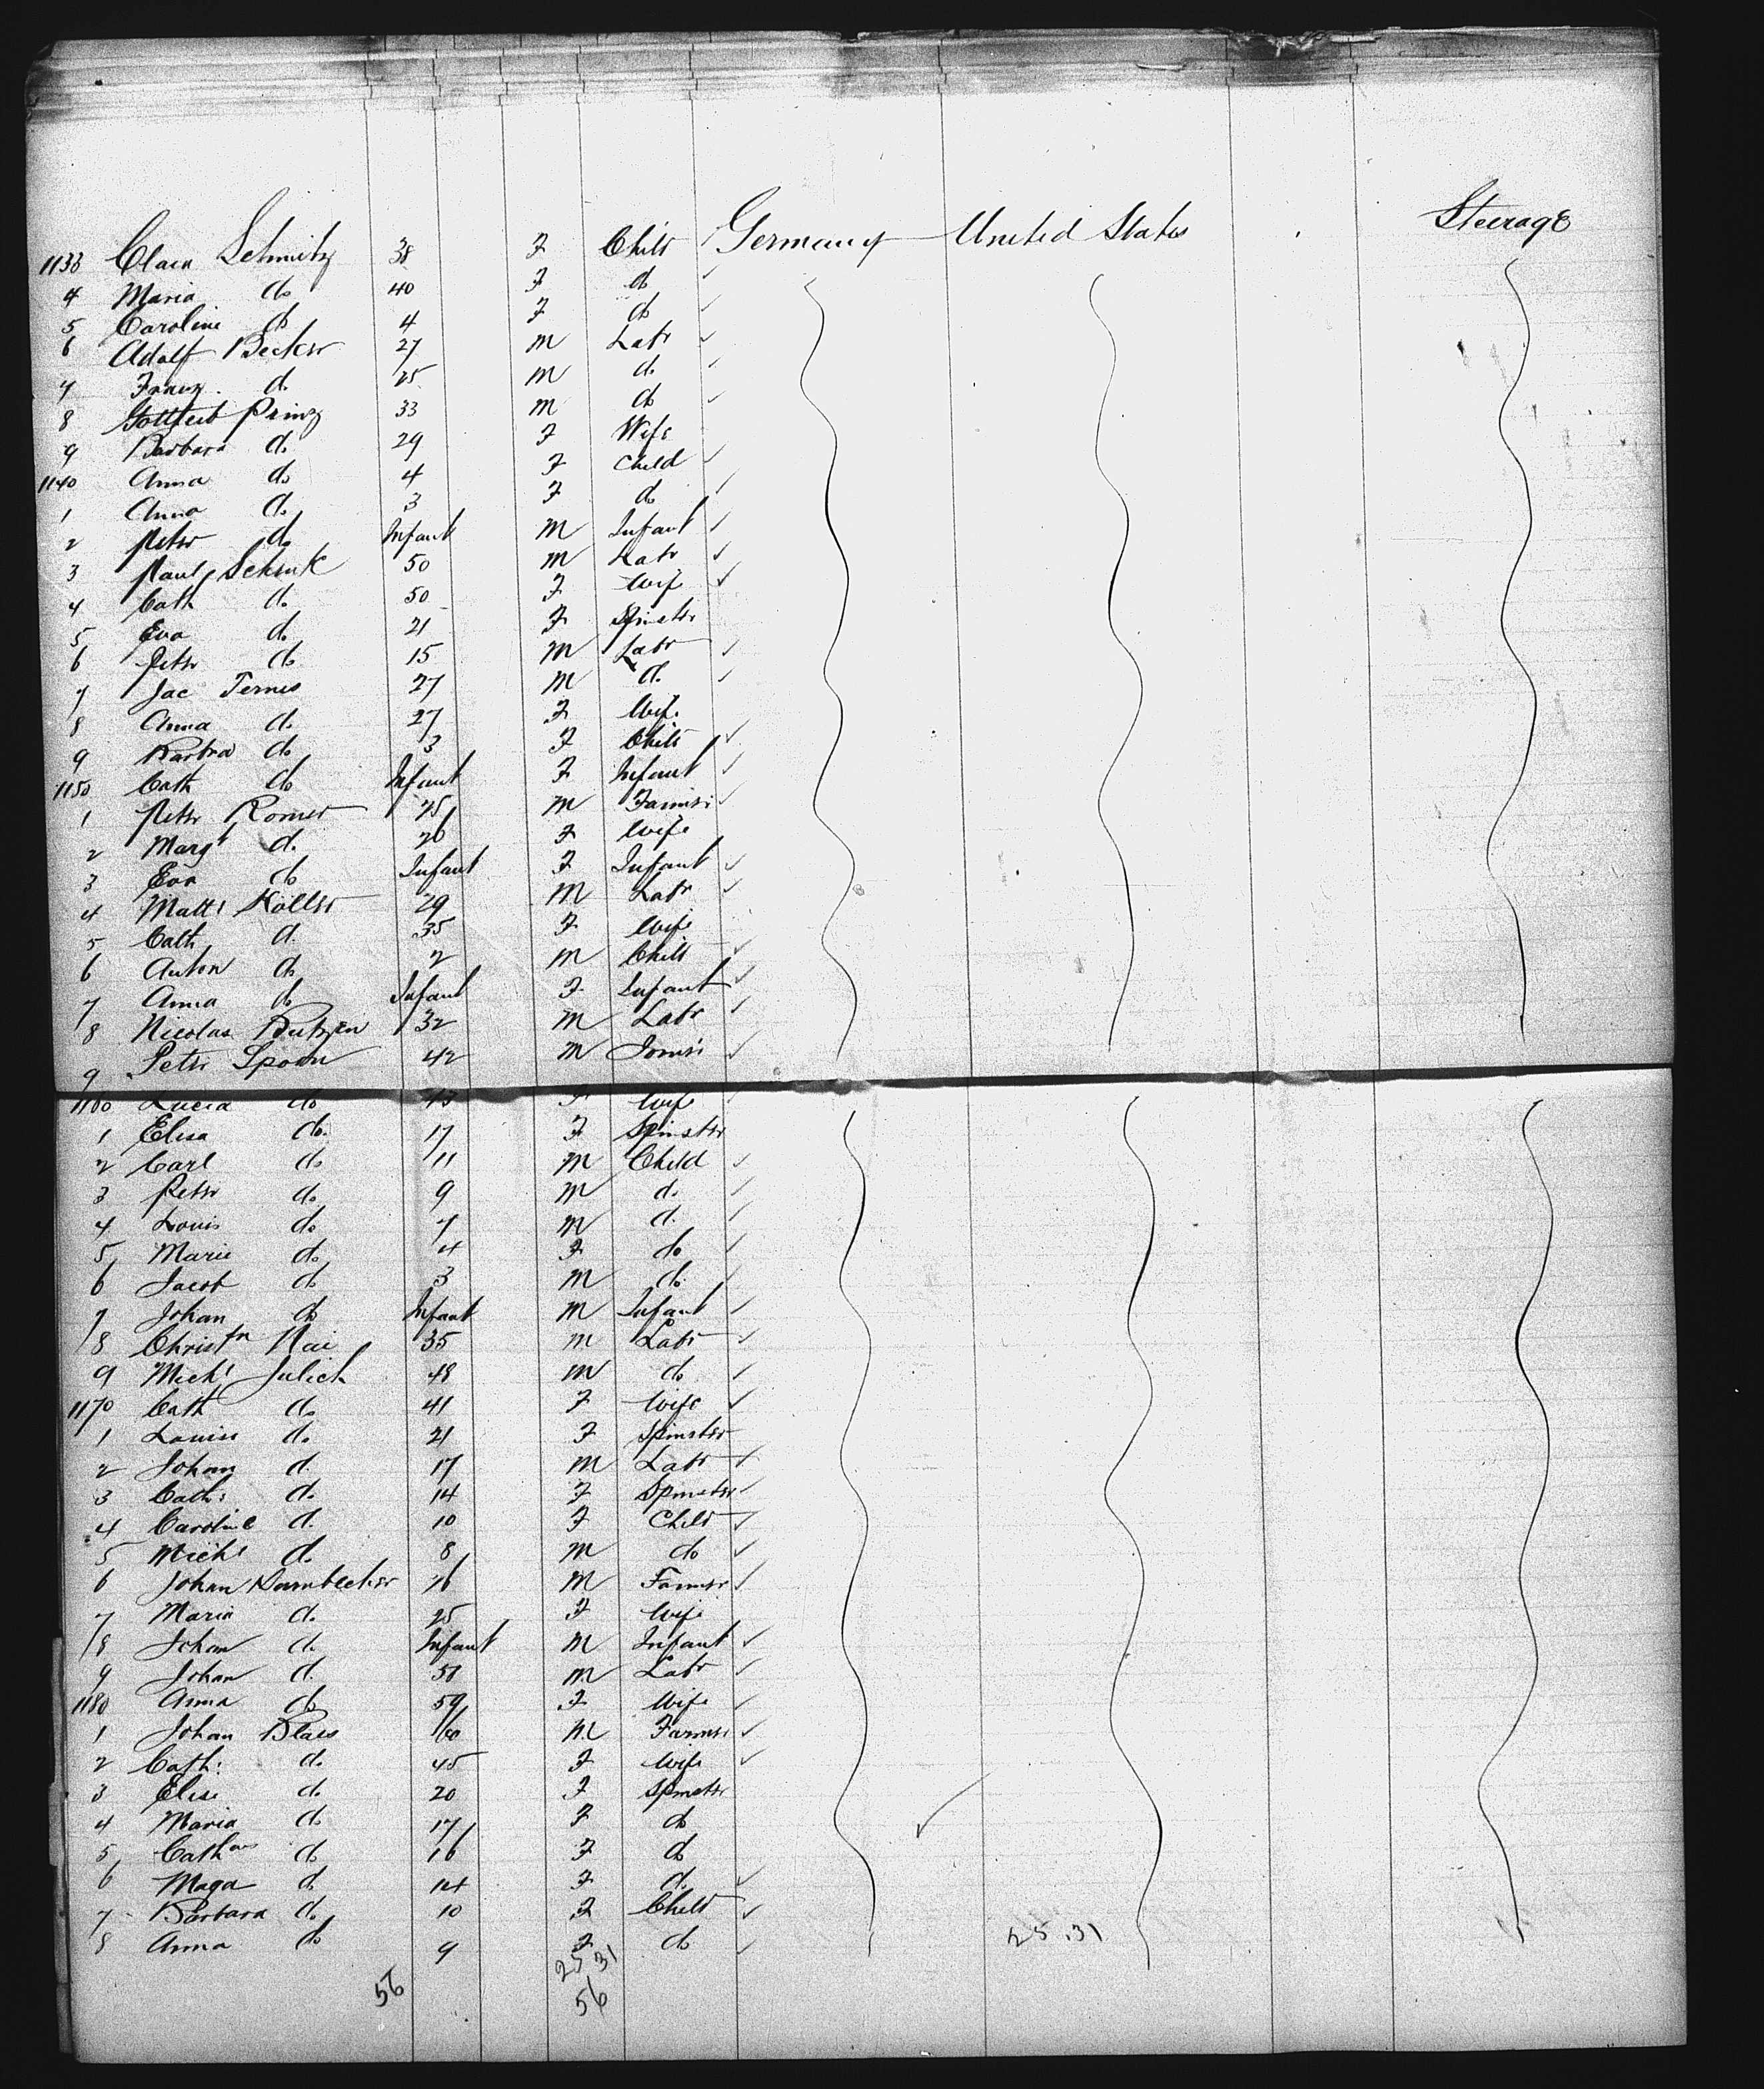 1133 Clara Schmitz 38 F Child Germany United States Steerage
4 Maria do 40 F do
5 Caroline do 4 F do
6 Adolf Becker 27 M Labr
7 Franz do 25 M do
8 Gottlieb Prinz 33 M do
9 Barbara do 29 F Wife
1140 Anna do 4 F Child
1 Anna do 3 F do
2 Peter do Infant M Infant
3 Paul Schenk 50 M Labr
4 Cath do 50 F Wife
5 Eva do 21 F Spinster
6 Peter do 15 M Labr
7 Jac Ternes 27 M do
8 Anna do 27 F Wife
9 Barbra do 3 F Child
1150 Cath do Infant F Infant
1 Peter Romer 25 M Farmer
2 Margt do 26 F Wife
3 Eva do Infant F Infant
4 Matts Koller 29 M Labr
5 Cath do 35 F Wife
6 Anton do 2 M Child
7 Anna do Infant F Infant
8 Nicolas Butzen 32 M Labr
9 Peter Spoon 42 M
1160 Lucia do 43 F Wife
1 Elisa do 17 F Spinster
2 Carl do 11 M Child
3 Peter do 9 M do
4 Louis do 7 M do
5 Marie do 4 F do
6 Jacob do 3 M do
7 Johan do Infant M Infant
8 Christn Nai 35 M Labr
9 Michl Julich 48 M do
1170 Cath do 41 F Wife
1 Louise do 21 F Spinster
2 Johan do 17 M Labr
3 Cath: do 14 F Spinster
4 Caroline do 10 F Child
5 Michl do 8 M do
6 Johan Dambecker 26 M Farmer
7 Maria do 25 F Wife
8 Johan do Infant M Infant
9 Johan do M Labr
1180 Anna do 59 F Wife
1 Johan Blaes 60 M Farmer
2 Cath: do 45 F Wife
3 Elise do 20 F Spinster
4 Maria do 17 F do
5 Cath do 16 F do
6 Maga do 14 F do
7 Barbara do 10 F Child
8 Anna do 9 F do
25 31 25.31
56 56